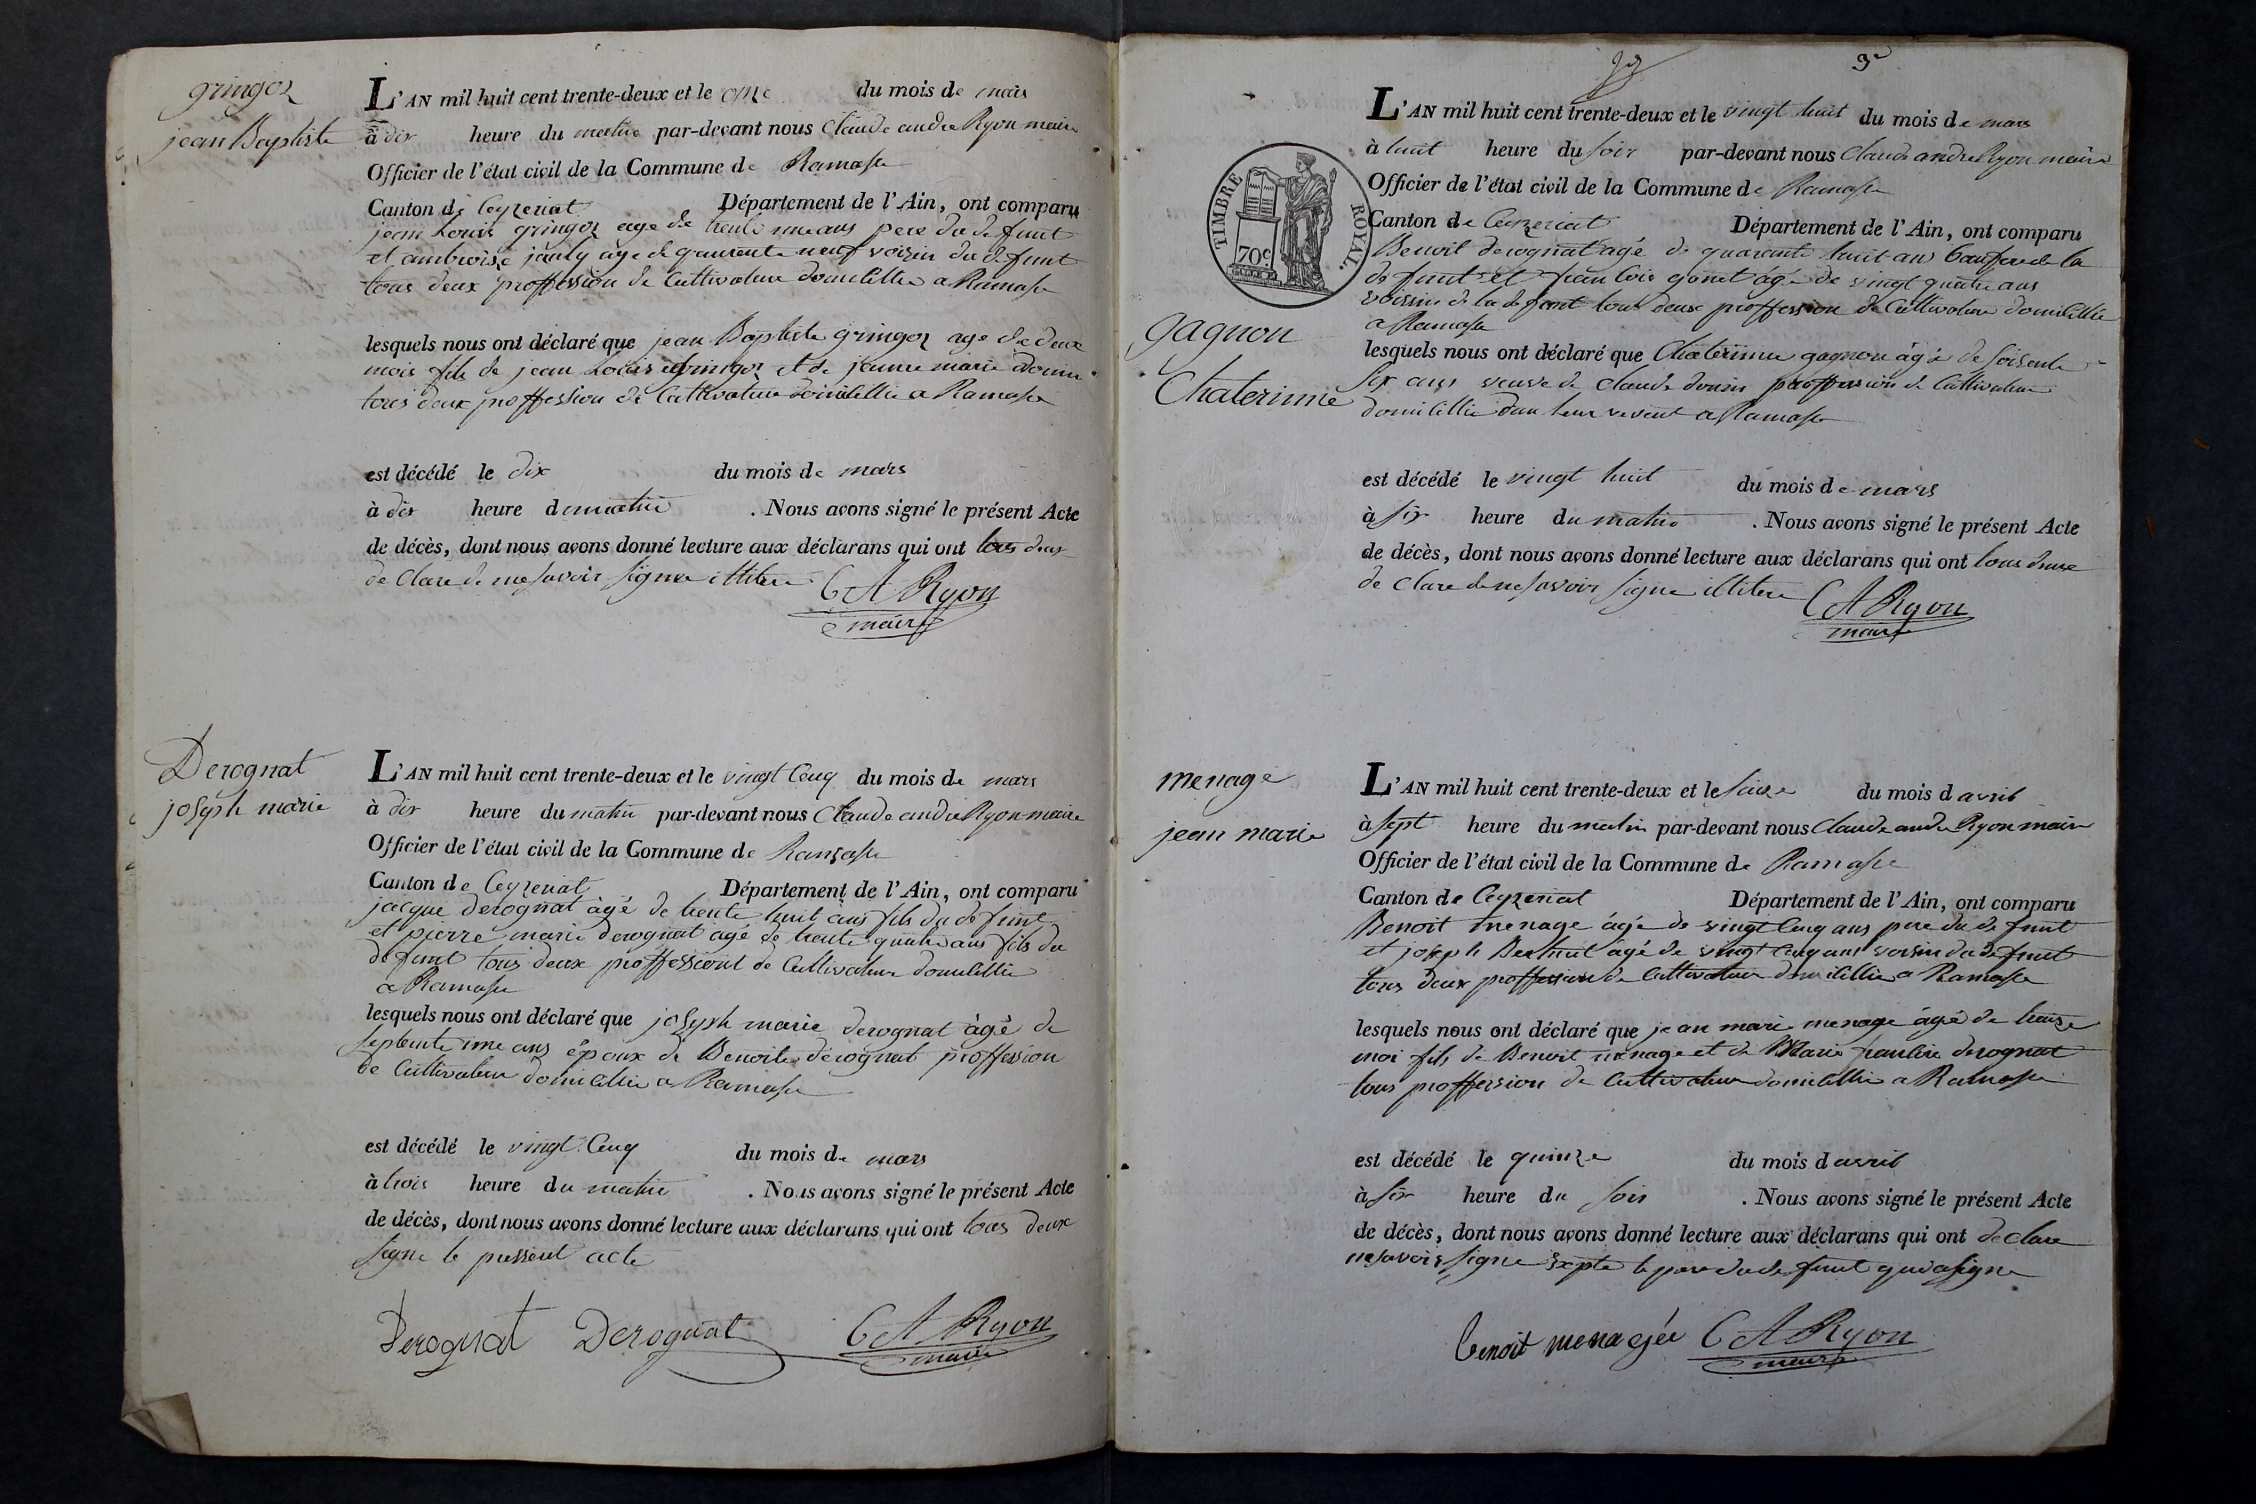 gringoz
jean Baptiste
L'AN mil huit cent trente-deux et le onze du mois de mars
à dix heure du matin par-devant nous Claude andre Ryon maire
Officier de l'état civil de la Commune de Ramasse
Canton de Ceyzeriat Département de l'Ain, ont comparu
jean Louis gringoz age de trente une ans pere du defunt
et ambroise jauly age de quarente neuf voisin du defunt
tous deux proffession de Cultivateur domicillie a Ramasse
lesquels nous ont déclaré que jean Baptiste gringoz age de deux
mois fils de jean Louis gringoz et de jeanne marie Donin
tous deux proffession de Cultivateur domicillie a Ramasse
est décédé le dix du mois de mars
à dix heure du matin . Nous avons signé le présent Acte
de décès, dont nous avons donné lecture aux déclarans qui ont tous deux
de clare de ne savoir signer illitere
C A Ryon
maire
Derognat
joseph marie
L'AN mil huit cent trente-deux et le vingt Cinq du mois de mars
à dix heure du matin par-devant nous Claude andre Ryon maire
Officier de l'état civil de la Commune de Ramasse
Canton de Ceyzeriat Département de l'Ain, ont comparu
jacque derognat àgé de trente huit ans fils du defunt
et pierre marie derognat agé de trente quatre ans fils du
defunt tous deux proffessiont de Cultivateur domicillie
a Ramasse
lesquels nous ont déclaré que joseph marie derognat àgé de
septente une ans époux de Benoite derognat proffession
de Cultivateur domicillie a Ramasse
est décédé le vingt Cinq du mois de mars
à trois heure du matin . Nous avons signé le présent Acte
de décès, dont nous avons donné lecture aux déclarans qui ont tous deux
signe le pressent acte
Derognat Derognat C A Ryon
maire
3e
TIMBRE ROYAL.
70c
gagnon
Chaterinne
L'AN mil huit cent trente-deux et le vingt huit du mois de mars
à huit heure du soir par-devant nous Claude andre Ryon maire
Officier de l'état civil de la Commune de Ramasse
Canton de Ceyzeriat Département de l'Ain, ont comparu
Benoit derognat agé de quarante huit ans baufrere de la
defunt et jean Loui gonet àgé de vingt quatre ans
voissin de la defunt tous deux proffession de Cultivateur domicillie
a Ramasse
lesquels nous ont déclaré que Chaterinne gagnon àgé de soisente
six ans veuve de Claude donin proffession de Cultivateur
domicillie dan leur vivent a Ramasse
est décédé le vingt huit du mois de mars
à six heure du matin . Nous avons signé le présent Acte
de décès, dont nous avons donné lecture aux déclarans qui ont tous deux
de clare de ne savoir signe illitere
C A Ryon
maire
menage
jean marie
L'AN mil huit cent trente-deux et le seize du mois d avril
à sept heure du matin par-devant nous Claude andre Ryon maire
Officier de l'état civil de la Commune de Ramasse
Canton de Ceyzeriat Département de l'Ain, ont comparu
Benoit menage àgé de vingt Cinq ans pere du defunt
et joseph Berthuit àgé de vingt Cinq ans voisin du defunt
tous deux proffession de Cultivateur domicillie a Ramasse
lesquels nous ont déclaré que jean marie menage àgé de treize
moi fils de Benoit menage et de Marie pauline derognat
tous proffession de Cultivateur domicillie a Ramasse
est décédé le quinze du mois d avril
à six heure du soir . Nous avons signé le présent Acte
de décès, dont nous avons donné lecture aux déclarans qui ont declare
ne savoir signe expte le pere du defunt qui a signe
benoit menagée C A Ryon
maire